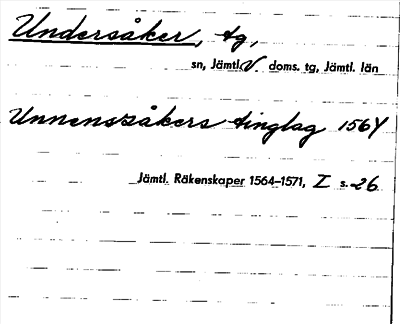 Undersåker, tg,
sn, Jämtl. V doms. tg, Jämtl. län
Unnenszåkers tinglag 1564
Jämtl. Räkenskaper 1564–1571, I s. 26